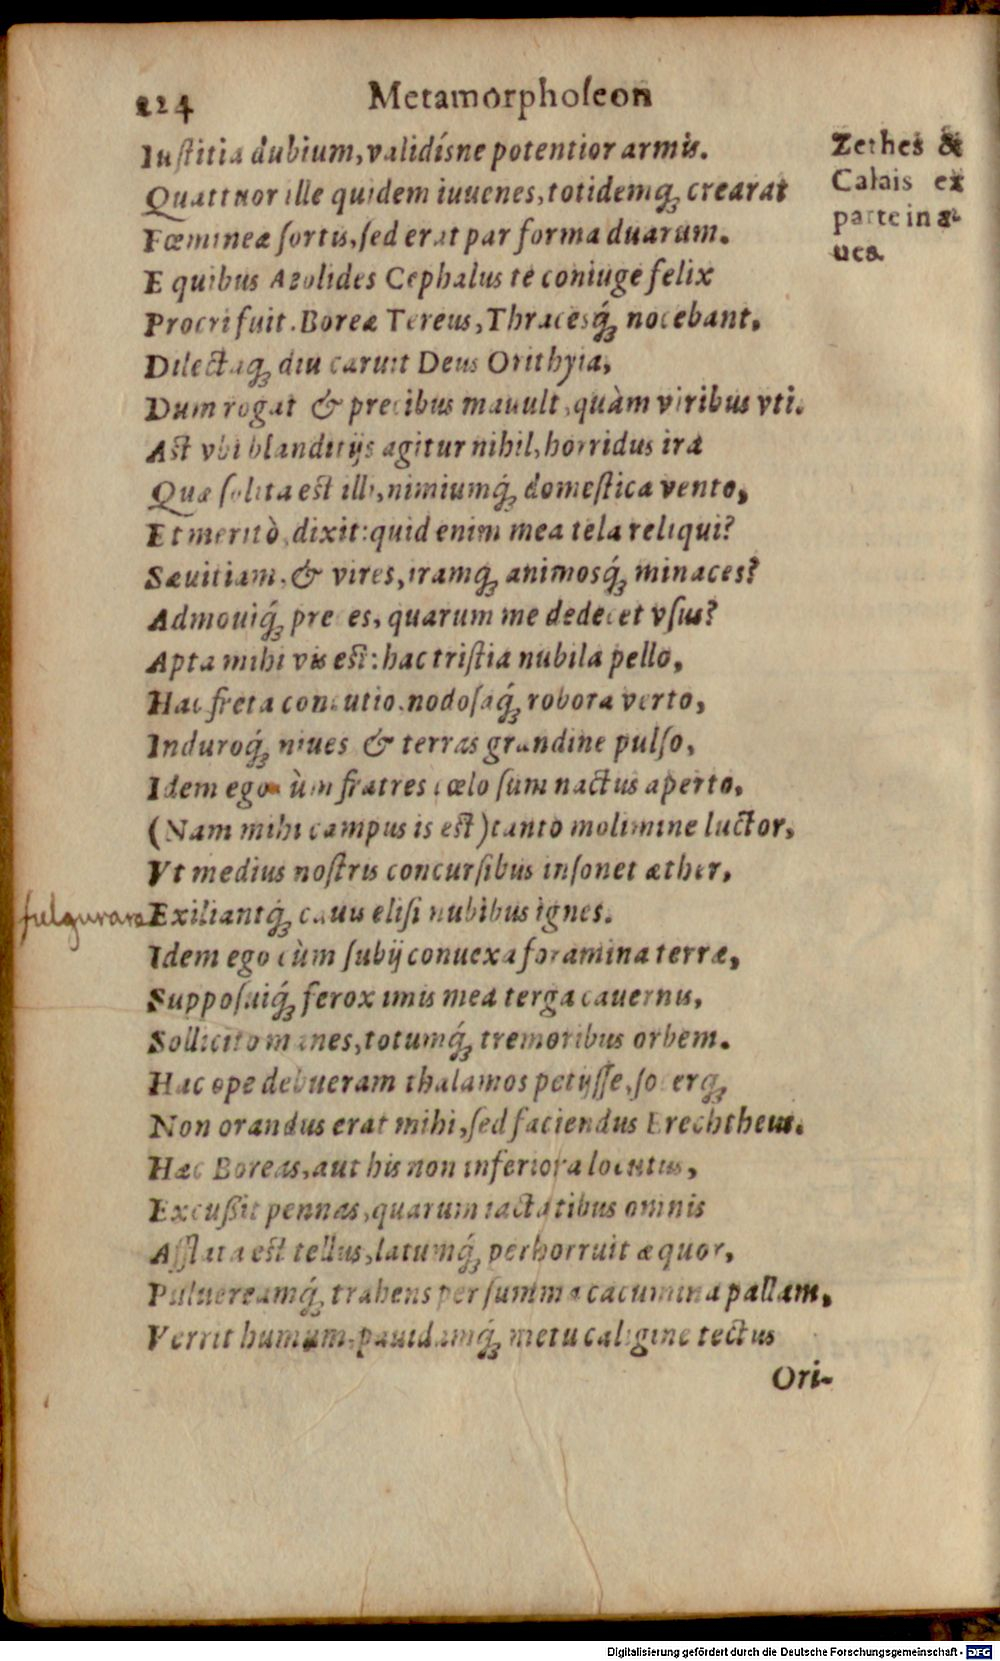 224 Metamorphoſeon
Iuſtitia dubium, validíſne potentior armis.
Quattuor ille quidem iuuenes, totidemq́; crearat
Fœmineæ ſortis, ſed erat par forma duarum.
E quibus Aeolides Cephalus te coniuge felix
Procri fuit. Boreæ Tereus, Thracesq́; nocebant,
Dilectaq́; diu caruit Deus Orithyia,
Dum rogat & precibus mauult, quàm viribus vti.
Aſt vbi blanditijs agitur nihil, horridus ira
Quæ ſolita eſt illi, nimiumq́; domeſtica vento,
Et meritò, dixit: quid enim mea tela reliqui?
Sæuitiam, & vires, iramq́; animosq́; minaces?
Admouiq́; preces, quarum me dedecet vſus?
Apta mihi vis eſt: hac triſtia nubila pello,
Hac freta concutio, nodoſaq́; robora verto,
Induroq́; niues & terras grandine pulſo,
Idem ego cùm fratres cœlo ſum nactus aperto,
(Nam mihi campus is eſt) tanto molimine luctor,
Vt medius noſtris concurſibus inſonet æther,
fulgurare
Exiliantq́; cauis eliſi nubibus ignes.
Idem ego cùm ſubij conuexa foramina terræ,
Suppoſuiq́; ferox imis mea terga cauernis,
Sollicito manes, totumq́; tremoribus orbem.
Hac ope debueram thalamos petijſſe, ſocerq́;
Non orandus erat mihi, ſed faciendus Erechtheus.
Hæc Boreas, aut his non inferiora locutus,
Excußit pennas, quarum iactatibus omnis
Afflata eſt tellus, latumq́; perhorruit æquor,
Puluereamq́; trahens per ſumma cacumina pallam,
Verrit humum, pauidamq́; metu caligine tectus
Ori-
Zethes &
Calais ex
parte in a-
ues.
Digitalisierung gefördert durch die Deutsche Forschungsgemeinschaft - DFG